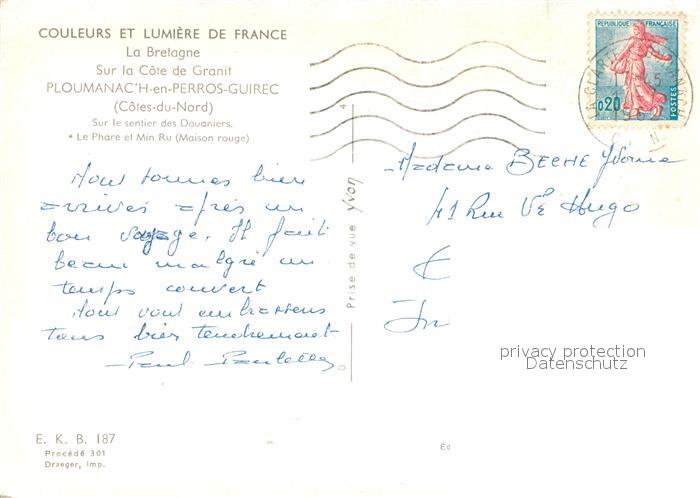 COULEURS ET LUMIÈRE DE FRANCE
La Bretagne
Sur la Côte de Granit
PLOUMANAC'H-en-PERROS-GUIREC
(Côtes-du-Nord)
Sur le sentier des Douaniers.
• Le Phare et Min Ru (Maison rouge)
Nous sommes bien
arrivés après un
bon voyage. Il fait
beau malgré un
temps couvert
Nous vous embrassons
tous bien tendrement
Paul
E. K. B. 187
Procédé 301
Draeger, Imp.
4
Prise de vue Yvon
REPUBLIQUE FRANÇAISE
0,20
POSTES
Madame BECHE Yvonne
41 Rue Vr Hugo
privacy protection
Datenschutz
Éd